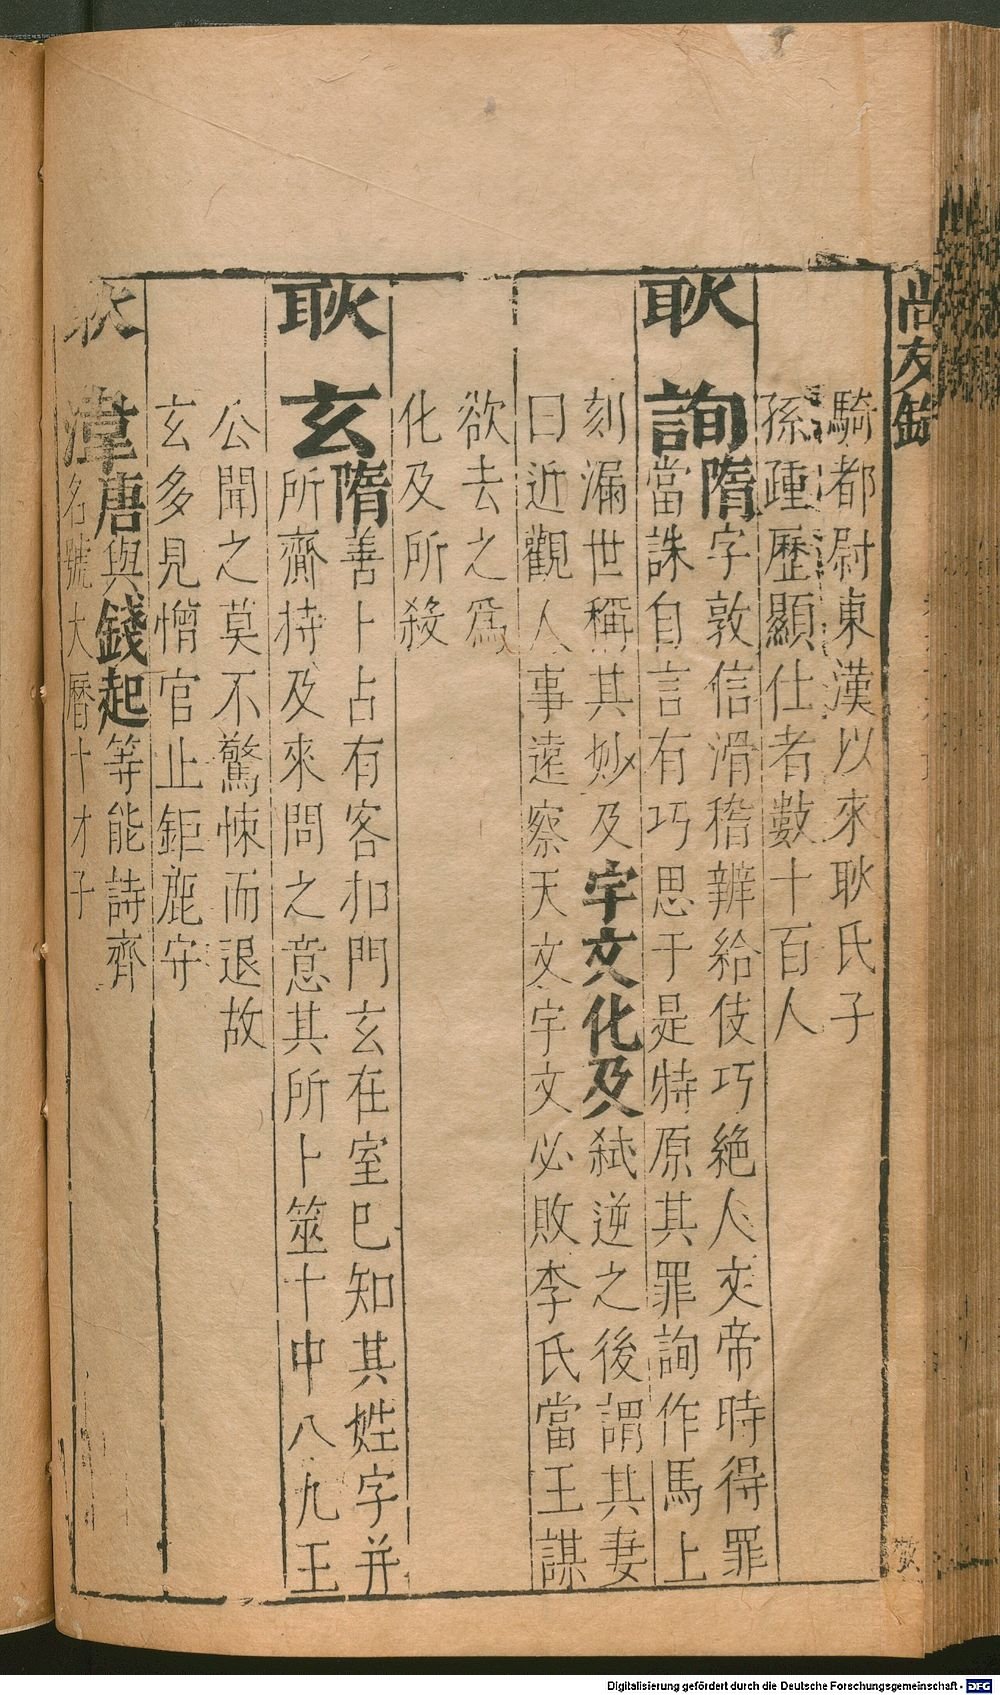 尚友錄
騎都尉東漢以來耿氏子
孫踵歷顯仕者數十百人
耿詢隋字敦信滑稽辨給伎巧絕人文帝時得罪
當誅自言有巧思于是特原其罪詢作馬上
刻漏世稱其妙及宇文化及弒逆之後謂其妻
曰近觀人事遠察天文宇文必敗李氏當王謀
欲去之為
化及所殺
耿玄隋善卜占有客扣門玄在室已知其姓字并
所齎持及來問之意其所卜筮十中八九王
公聞之莫不驚悚而退故
玄多見憎官止鉅鹿守
耿湋唐與錢起等能詩齊
名號大曆十才子
Digitalisierung gefördert durch die Deutsche Forschungsgemeinschaft - DFG